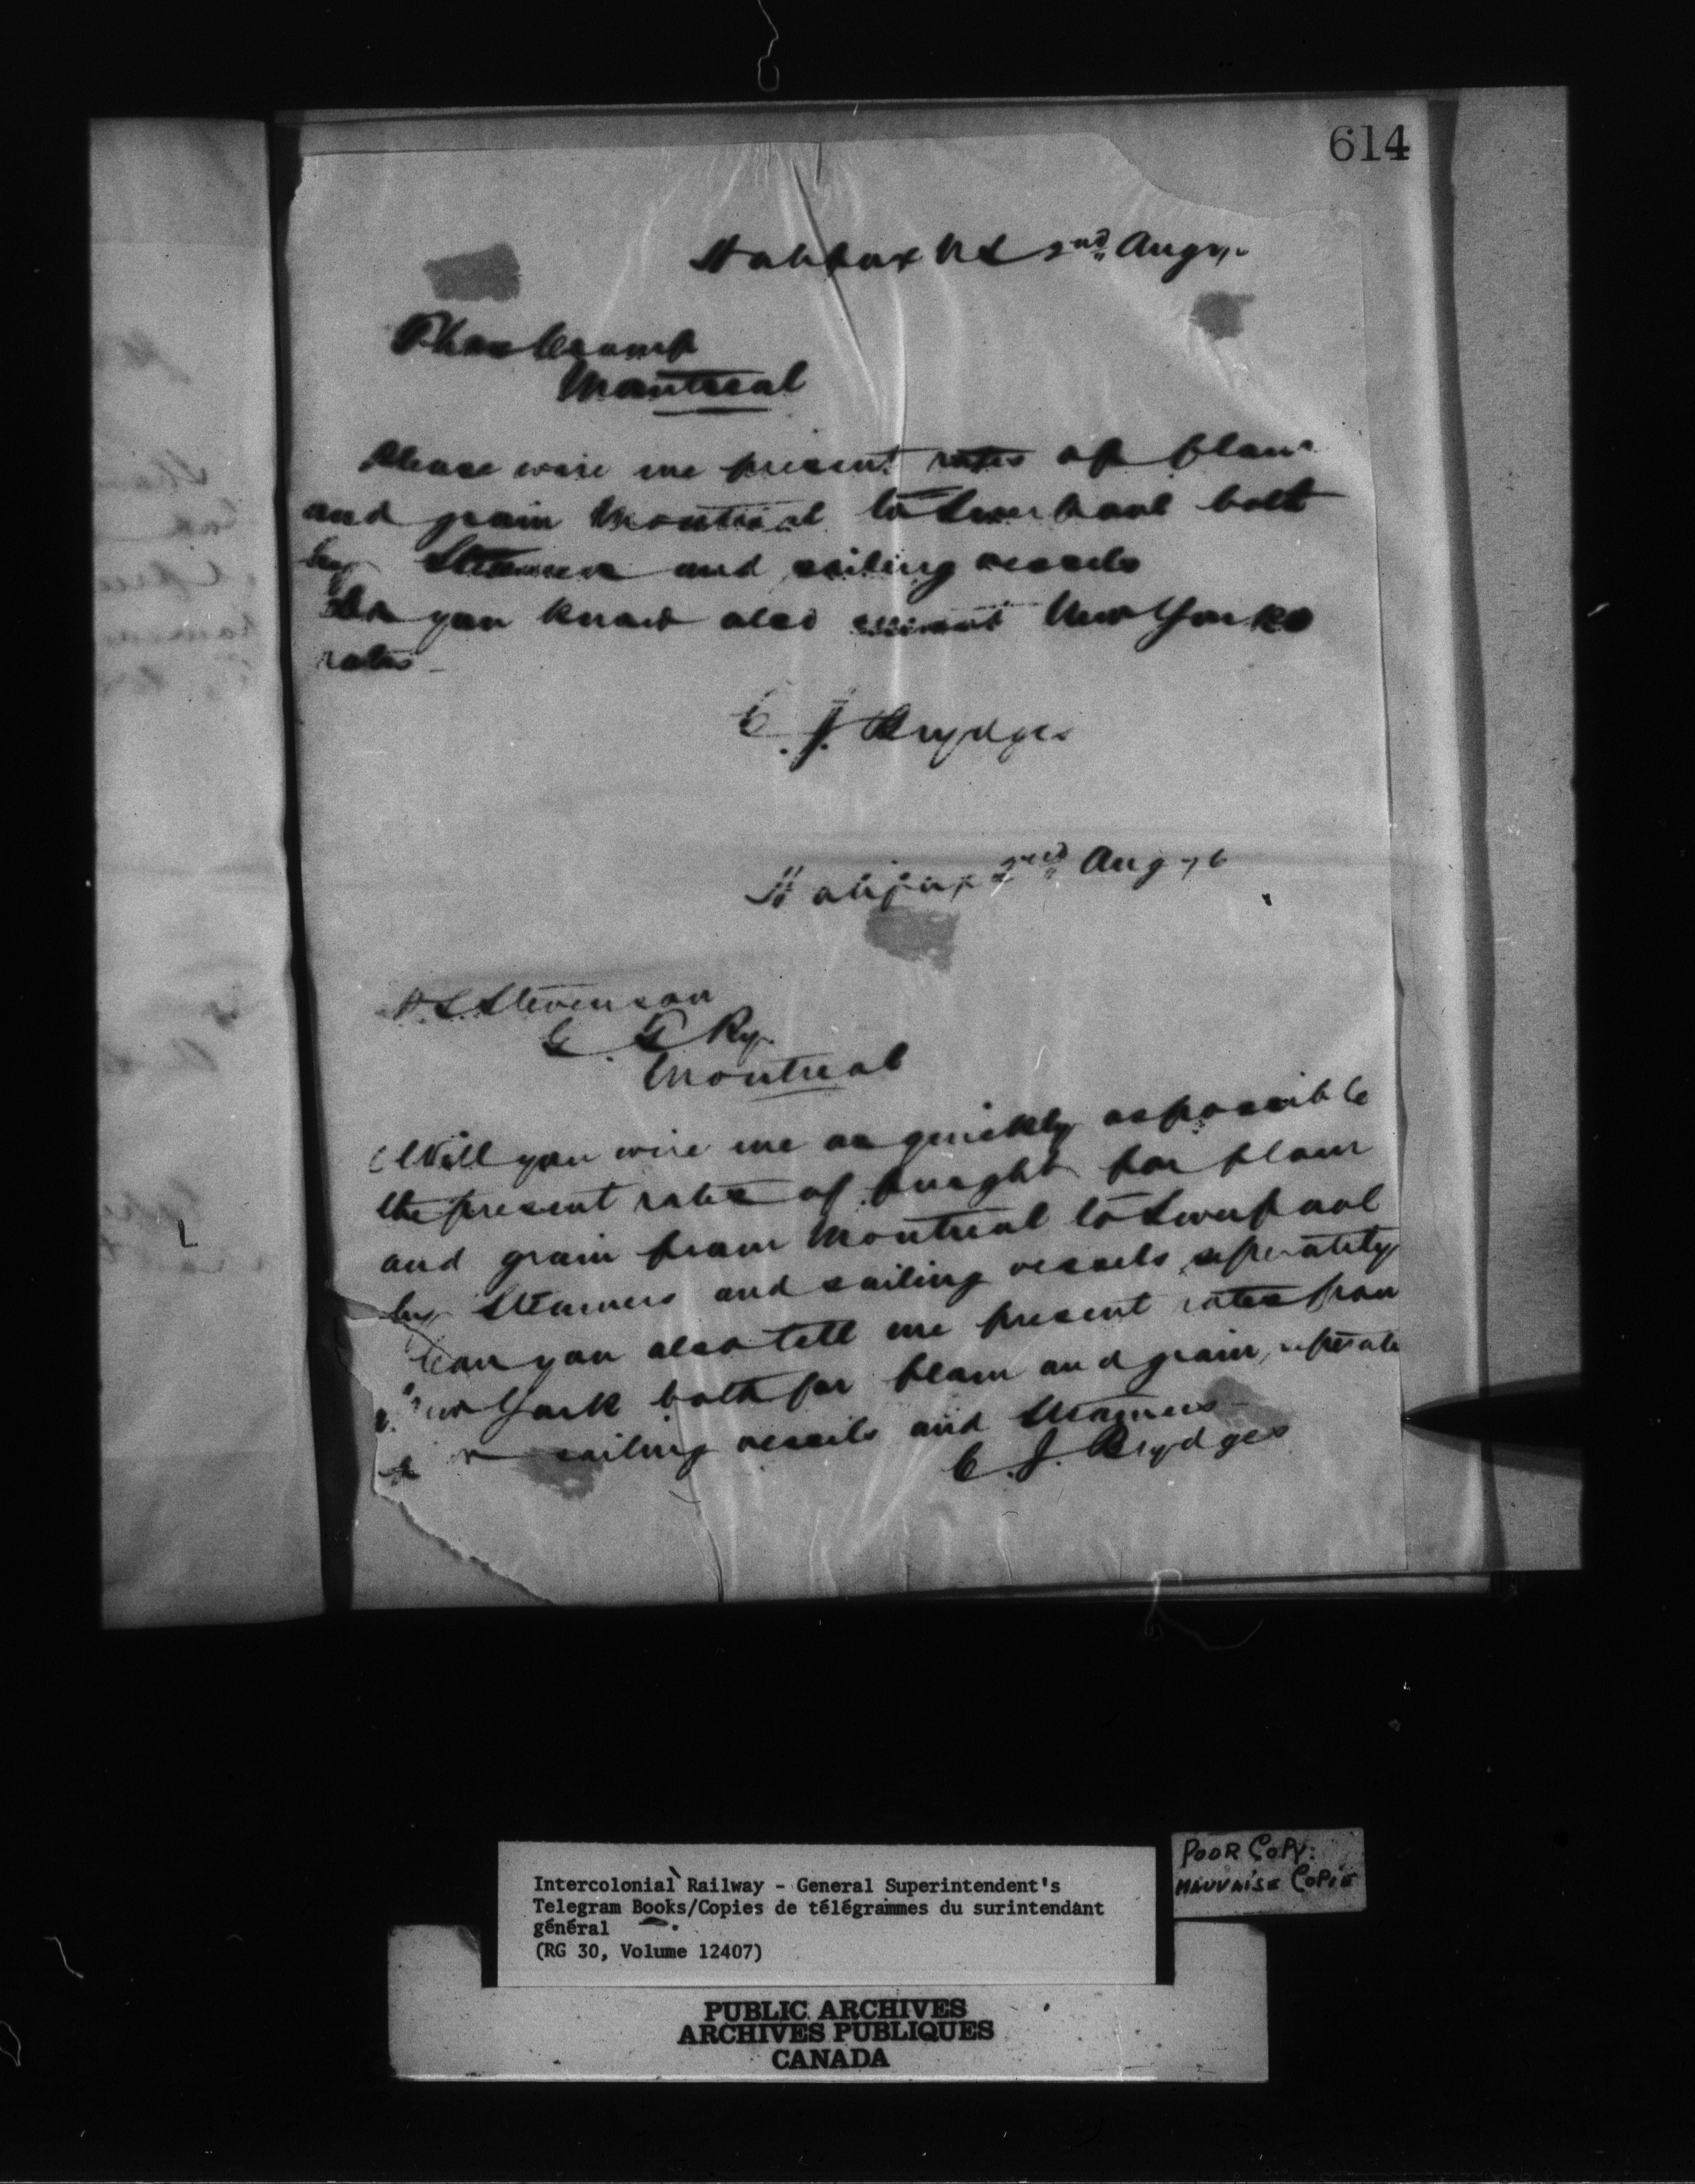 614
Halifax NS 2nd Aug
Thos Cramp
Montreal
Please wire me present rates of flour
and grain Montreal to Liverpool both
by Steamer and sailing vessels
Do you know also New York
rates -
C. J. Brydges
Halifax 2nd Aug 76
Stevenson
G. T Ry
Montreal
Will you wire me as quickly as possible
the present rates of freight for flour
and grain from Montreal to Liverpool
by Steamers and sailing vessels seperately
Can you also tell me present rates from
New York both for flour and grain, seperate
sailing vessels and Steamers -
C. J. Brydges
POOR COPY:
MAUVAISE COPIE
Intercolonial Railway - General Superintendent's
Telegram Books/Copies de télégrammes du surintendant
général
(RG 30, Volume 12407)
PUBLIC ARCHIVES
ARCHIVES PUBLIQUES
CANADA